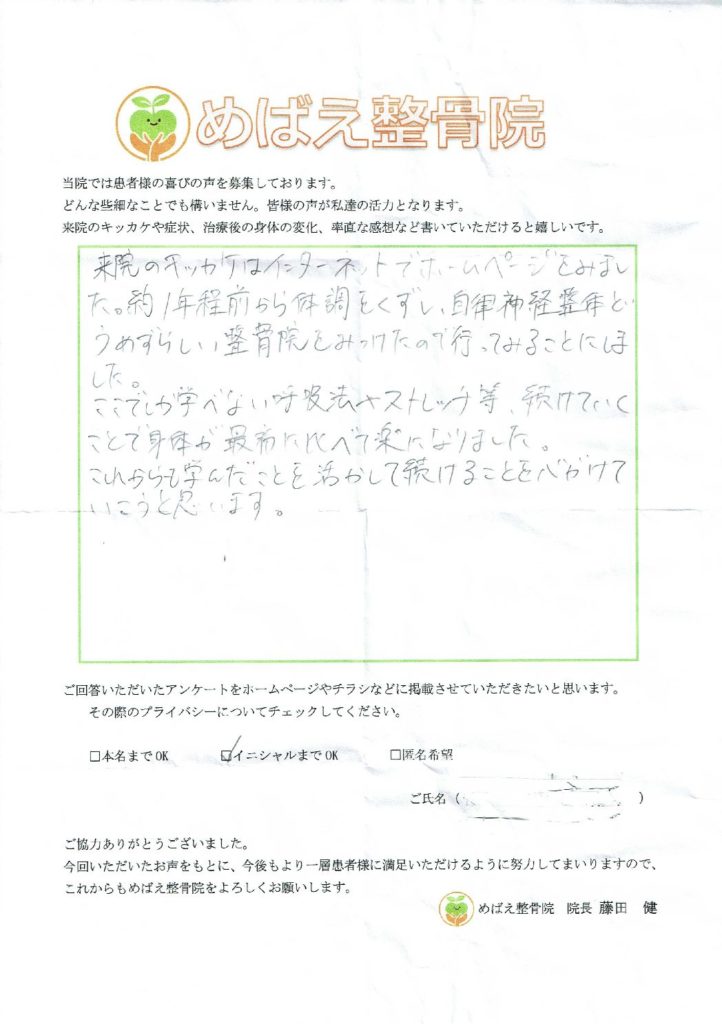 めばえ整骨院
当院では患者様の喜びの声を募集しております。
どんな些細なことでも構いません。皆様の声が私達の活力となります。
来院のキッカケや症状、治療後の身体の変化、率直な感想など書いていただけると嬉しいです。
来院のキッカケはインターネットでホームページをみまし
た。約1年程前から体調をくずし、自律神経整体とい
うめずらしい整骨院をみつけたので行ってみることにしま
した。
ここでしか学べない呼吸法やストレッチ等、続けていく
ことで身体が最初に比べて楽になりました。
これからも学んだことを活かして続けることを心がけて
いこうと思います。
ご回答いただいたアンケートをホームページやチラシなどに掲載させていただきたいと思います。
その際のプライバシーについてチェックしてください。
□本名までOK ☑イニシャルまでOK □匿名希望
ご氏名（ ）
ご協力ありがとうございました。
今回いただいたお声をもとに、今後もより一層患者様に満足いただけるように努力してまいりますので、
これからもめばえ整骨院をよろしくお願いします。
めばえ整骨院 院長 藤田 健